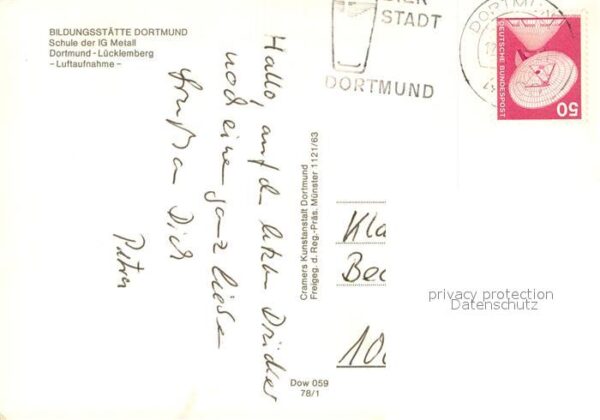 BILDUNGSSTÄTTE DORTMUND
Schule der IG Metall
Dortmund-Lücklemberg
- Luftaufnahme -
BIER
STADT
DORTMUND
DORTMUND
DEUTSCHE BUNDESPOST
50
Hallo, auf den letzten Drücker
noch einen ganz lieben
Gruß an Dich
Petra
Cramers Kunstanstalt Dortmund
Freigeg. d. Reg.-Präs. Münster 1121/63
Kla
Bec
10
privacy protection
Datenschutz
Dow 059
78/1